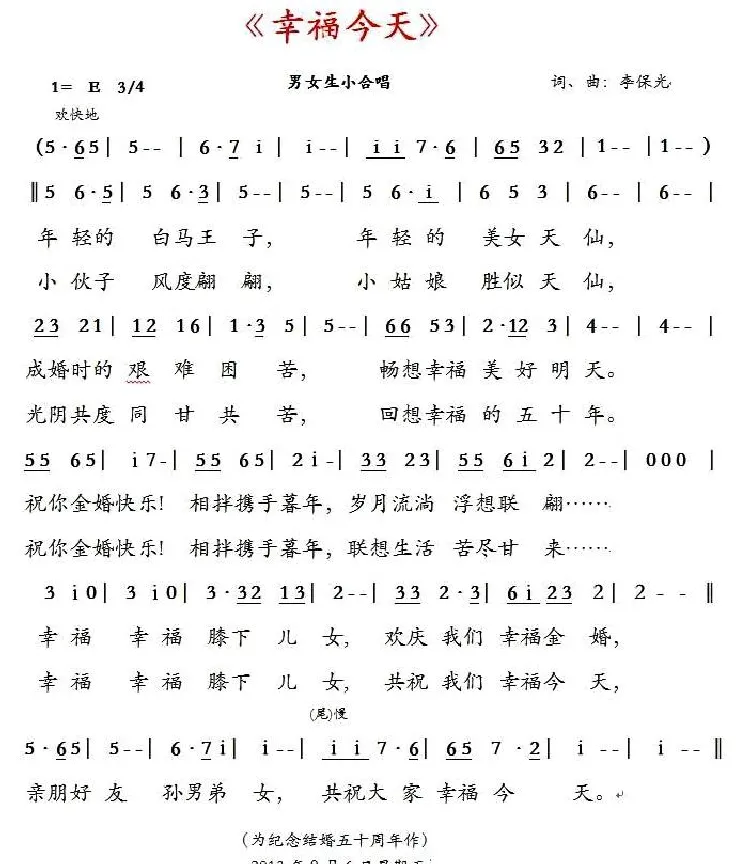 《幸福今天》
1= E 3/4 男女生小合唱 词、曲：李保光
欢快地
(5·65| 5--| 6·7 i| i--| i i 7·6| 65 32| 1--|1--)
‖5 6·5| 5 6·3| 5--| 5--| 5 6·i| 6 5 3| 6--| 6--|
年轻的 白马王 子， 年轻的 美女天 仙，
小伙子 风度翩 翩， 小姑娘 胜似天 仙，
23 21| 12 16| 1·3 5| 5--| 66 53| 2·12 3| 4--| 4--|
成婚时的 艰 难 困 苦， 畅想幸福 美好明 天。
光阴共度 同 甘 共 苦， 回想幸福 的五十 年。
55 65| i7-| 55 65| 2i-| 33 23| 55 6i 2| 2--| 000 |
祝你金婚快乐! 相拌携手暮年，岁月流淌 浮想联 翩……
祝你金婚快乐! 相拌携手暮年，联想生活 苦尽甘 来……
3 i0| 3 i0| 3·32 13| 2--| 33 2·3| 6i 23 2| 2 - - ‖
幸福 幸福 膝下 儿 女, 欢庆 我们 幸福金 婚，
幸福 幸福 膝下 儿 女, 共祝 我们 幸福今 天，
(尾)慢
5·65| 5--| 6·7i| i--| i i 7·6| 65 7·2| i--| i --‖
亲朋好 友 孙男弟 女，共祝大 家 幸福今 天。
（为纪念结婚五十周年作）